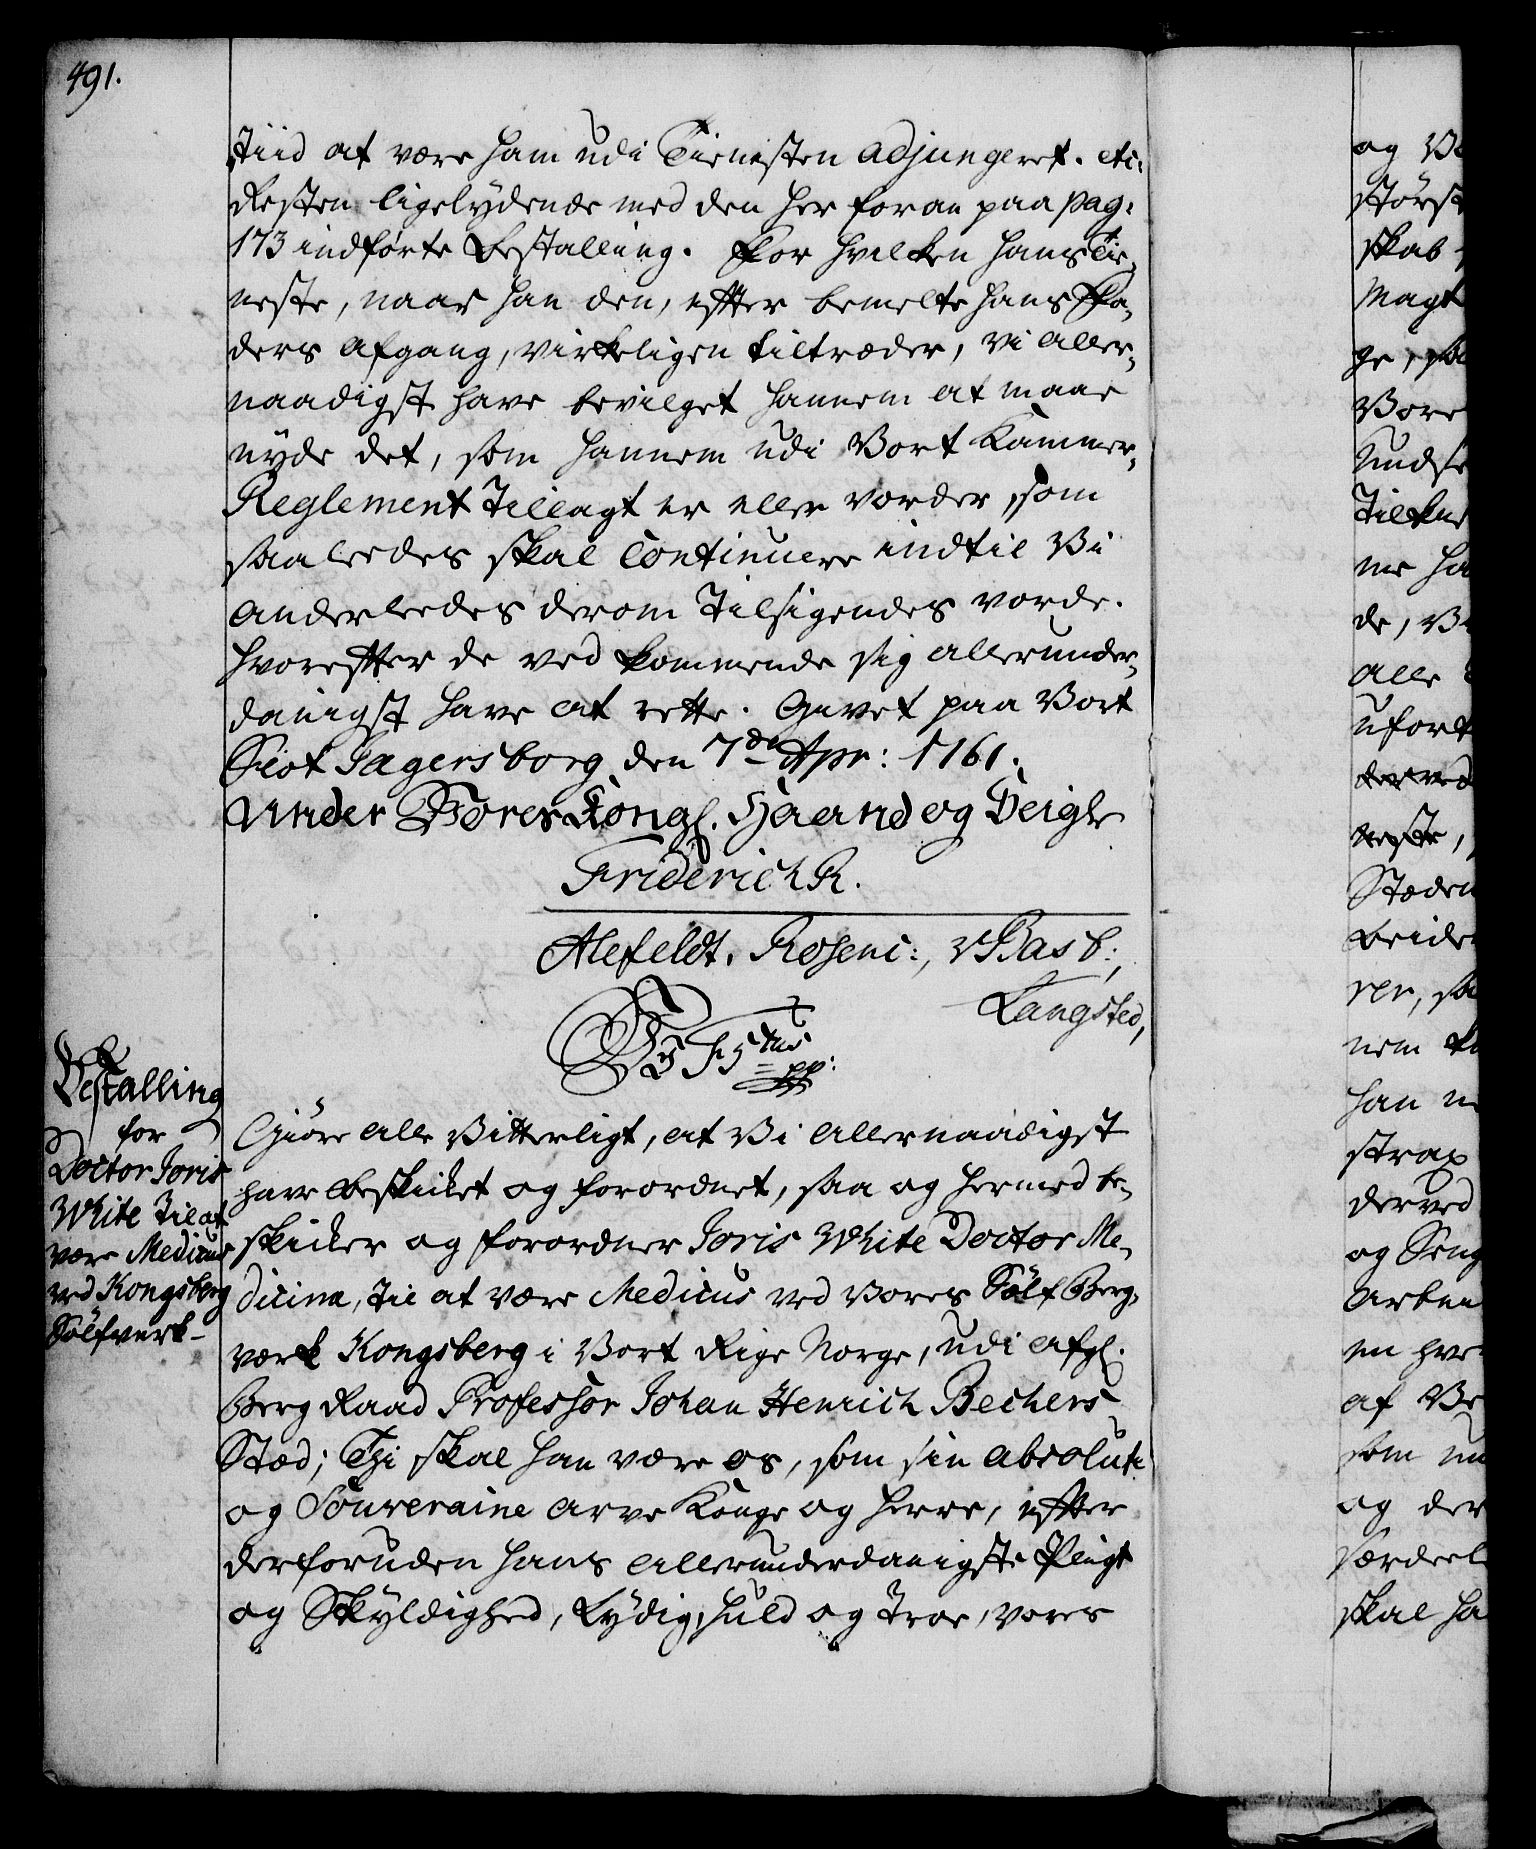 491.
Tiid at være ham udi Tienisten adjungeret. etc:
Resten ligelydende med den her foran paa pag:
173 indførte Bestalling. For hvilken hans Tie-
neste, naar han den, efter bemelte hans Fa-
ders Afgang, virkeligen tiltræder, vi Aller-
naadigst have bevilget hannem at maae
nyde det, som hannem udi Vort Kammer-
Reglement Tillagt er eller vorder, som
saaledes skal Continuere indtil Vi
anderledes derom Tilsigendes vorde.
Hvorefter de ved kommende sig allerunder-
danigst have at rette. Givet paa Vort
Slot Jagersborg den 7de Apr: 1761.
Under Vores Kongl. Haand og Seigl
Friderich R.
Alefeldt, Rosenc:, VBasb:,
Langsted,
Bestalling
for
Doctor Joris
White Til at
være Medicus
ved Kongsberg
Sølfverk -
Vi F: 5tus
pp:
Giøre Alle Vitterligt, at Vi Allernaadigst
have beskicket og forordnet, saa og hermed be-
skicker og forordner Joris White Doctor Me-
dicinæ, til at være Medicus ved Vores Sølf Berg-
værk Kongsberg i Vort Rige Norge, udi afgl.
Berg Raad Professor Johan Henrich Bechers
Stæd; Thi skal han være os, som sin absolute
og Souveraine Arve Konge og Herre, efter
derforuden hans allerunderdanigste Pligt
og Skyldighed, Lydig, huld og Troe, vores
og Vo
størst
skab
Magt
ge, saa
Vore
Undse
Tilkie
me ha
de, V
Alle
ufort
der ved
neste,
Stæden
beider
rer, sa
nem k
han n
strax
derved
og Seng
Arbei
en hve
af Be
som un
og der
særdeel
skal ha